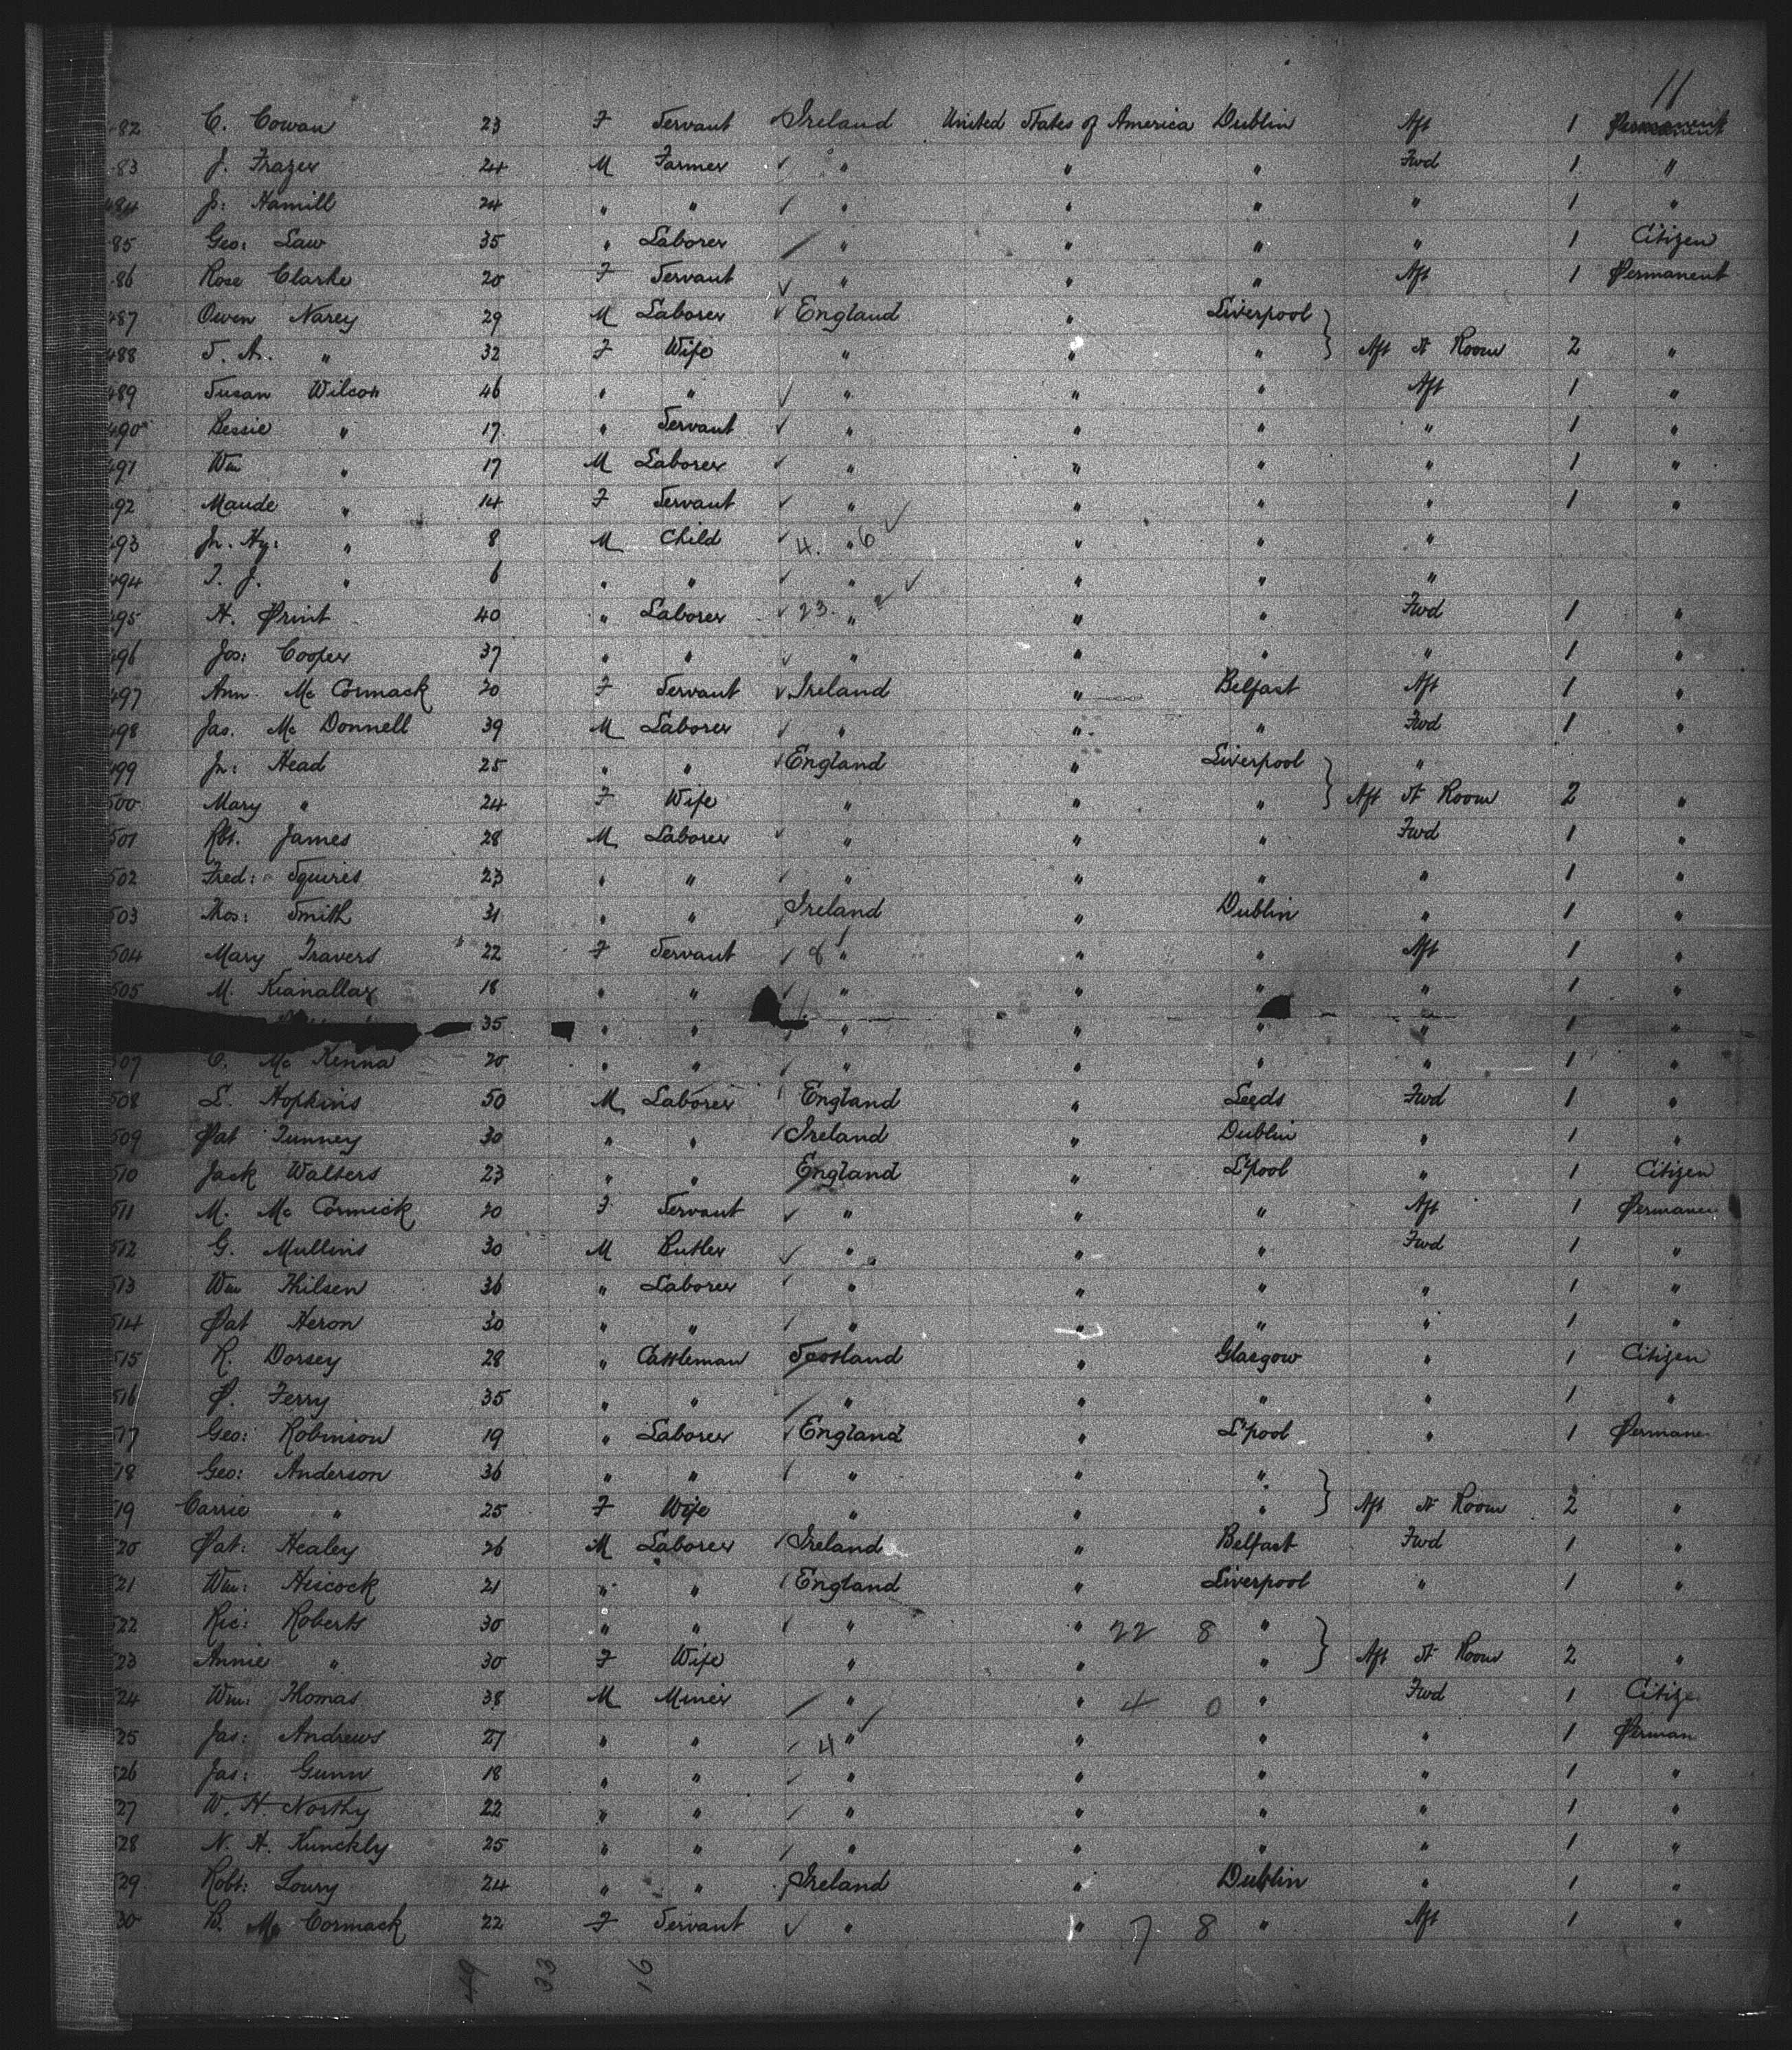 11
82 C. Cowan 23 F Servant Ireland United States of America Dublin Aft 1 Permanent
83 J. Frazer 24 M Farmer " " " Fwd 1 "
484 Jn: Hamill 24 " " " " " " 1 "
85 Geo: Law 35 " Laborer " " " " 1 Citizen
86 Rose Clarke 20 F Servant " " " Aft 1 Permanent
487 Owen Narey 29 M Laborer England " Liverpool
488 S. A. " 32 F Wife " " " Aft St Room 2 "
489 Susan Wilcox 46 " " " " " Aft 1 "
490 Bessie " 17 " Servant " " " " 1 "
491 Wm " 17 M Laborer " " " " 1 "
492 Maude " 14 F Servant " " " " 1 "
493 Jn. Hy: " 8 M Child 4. " 6 " " "
494 T. J. " 6 " " " " " "
495 H. Print 40 " Laborer 23. " " " Fwd 1 "
496 Jos: Cooper 37 " " " " " " 1 "
497 Ann Mc Cormack 20 F Servant Ireland " Belfast Aft 1 "
498 Jas. Mc Donnell 39 M Laborer " " " Fwd 1 "
499 Jn: Head 25 " " England " Liverpool "
500 Mary " 24 F Wife " " " Aft St Room 2 "
501 Rbt. James 28 M Laborer " " " Fwd 1 "
502 Fred: Squires 23 " " " " " " 1 "
503 Thos: Smith 31 " " Ireland " Dublin " 1 "
504 Mary Travers 22 F Servant 8 " " " Aft 1 "
505 M. 18 " " " " " " 1 "
35 " " " " " " 1 "
507 C. Mc Kenna 20 " " " " " " 1 "
508 L. Hopkins 50 M Laborer England " Leeds Fwd 1 "
509 Pat Tunney 30 " " Ireland " Dublin " 1 "
510 Jack Walters 23 " " England " L'pool " 1 Citizen
511 M. Mc Cormick 20 F Servant " " " Aft 1 Permanen
512 G. Mullins 30 M Butler " " " Fwd 1 "
513 Wm Thilsen 36 " Laborer " " " " 1 "
514 Pat Heron 30 " " " " " " 1 "
515 R. Dorsey 28 " Cattleman Scotland " Glasgow " 1 Citizen
516 P. Ferry 35 " " " " " " 1 "
517 Geo: Robinson 19 " Laborer England " L'pool " 1 Permane
518 Geo: Anderson 36 " " " " "
519 Carrie " 25 F Wife " " " Aft St Room 2 "
520 Pat: Healey 26 M Laborer Ireland " Belfast Fwd 1 "
521 Wm: Hiscock 21 " " England " Liverpool " 1 "
522 Ric: Roberts 30 " " " " 22 8 "
523 Annie " 30 F Wife " " " Aft St Room 2 "
24 Wm: Thomas 38 M Miner " " 4 0 " Fwd 1 Citize
25 Jas: Andrews 27 " " 4 " " " " 1 Perman
526 Jas: Gunn 18 " " " " " " 1 "
27 W. H. Northy 22 " " " " " " 1 "
528 N. H. Kunckly 25 " " " " " " 1 "
529 Robt: Loury 24 " " Ireland " Dublin " 1 "
30 B. Mc Cormack 22 F Servant " " 7 8 " Aft 1 "
49 33 16